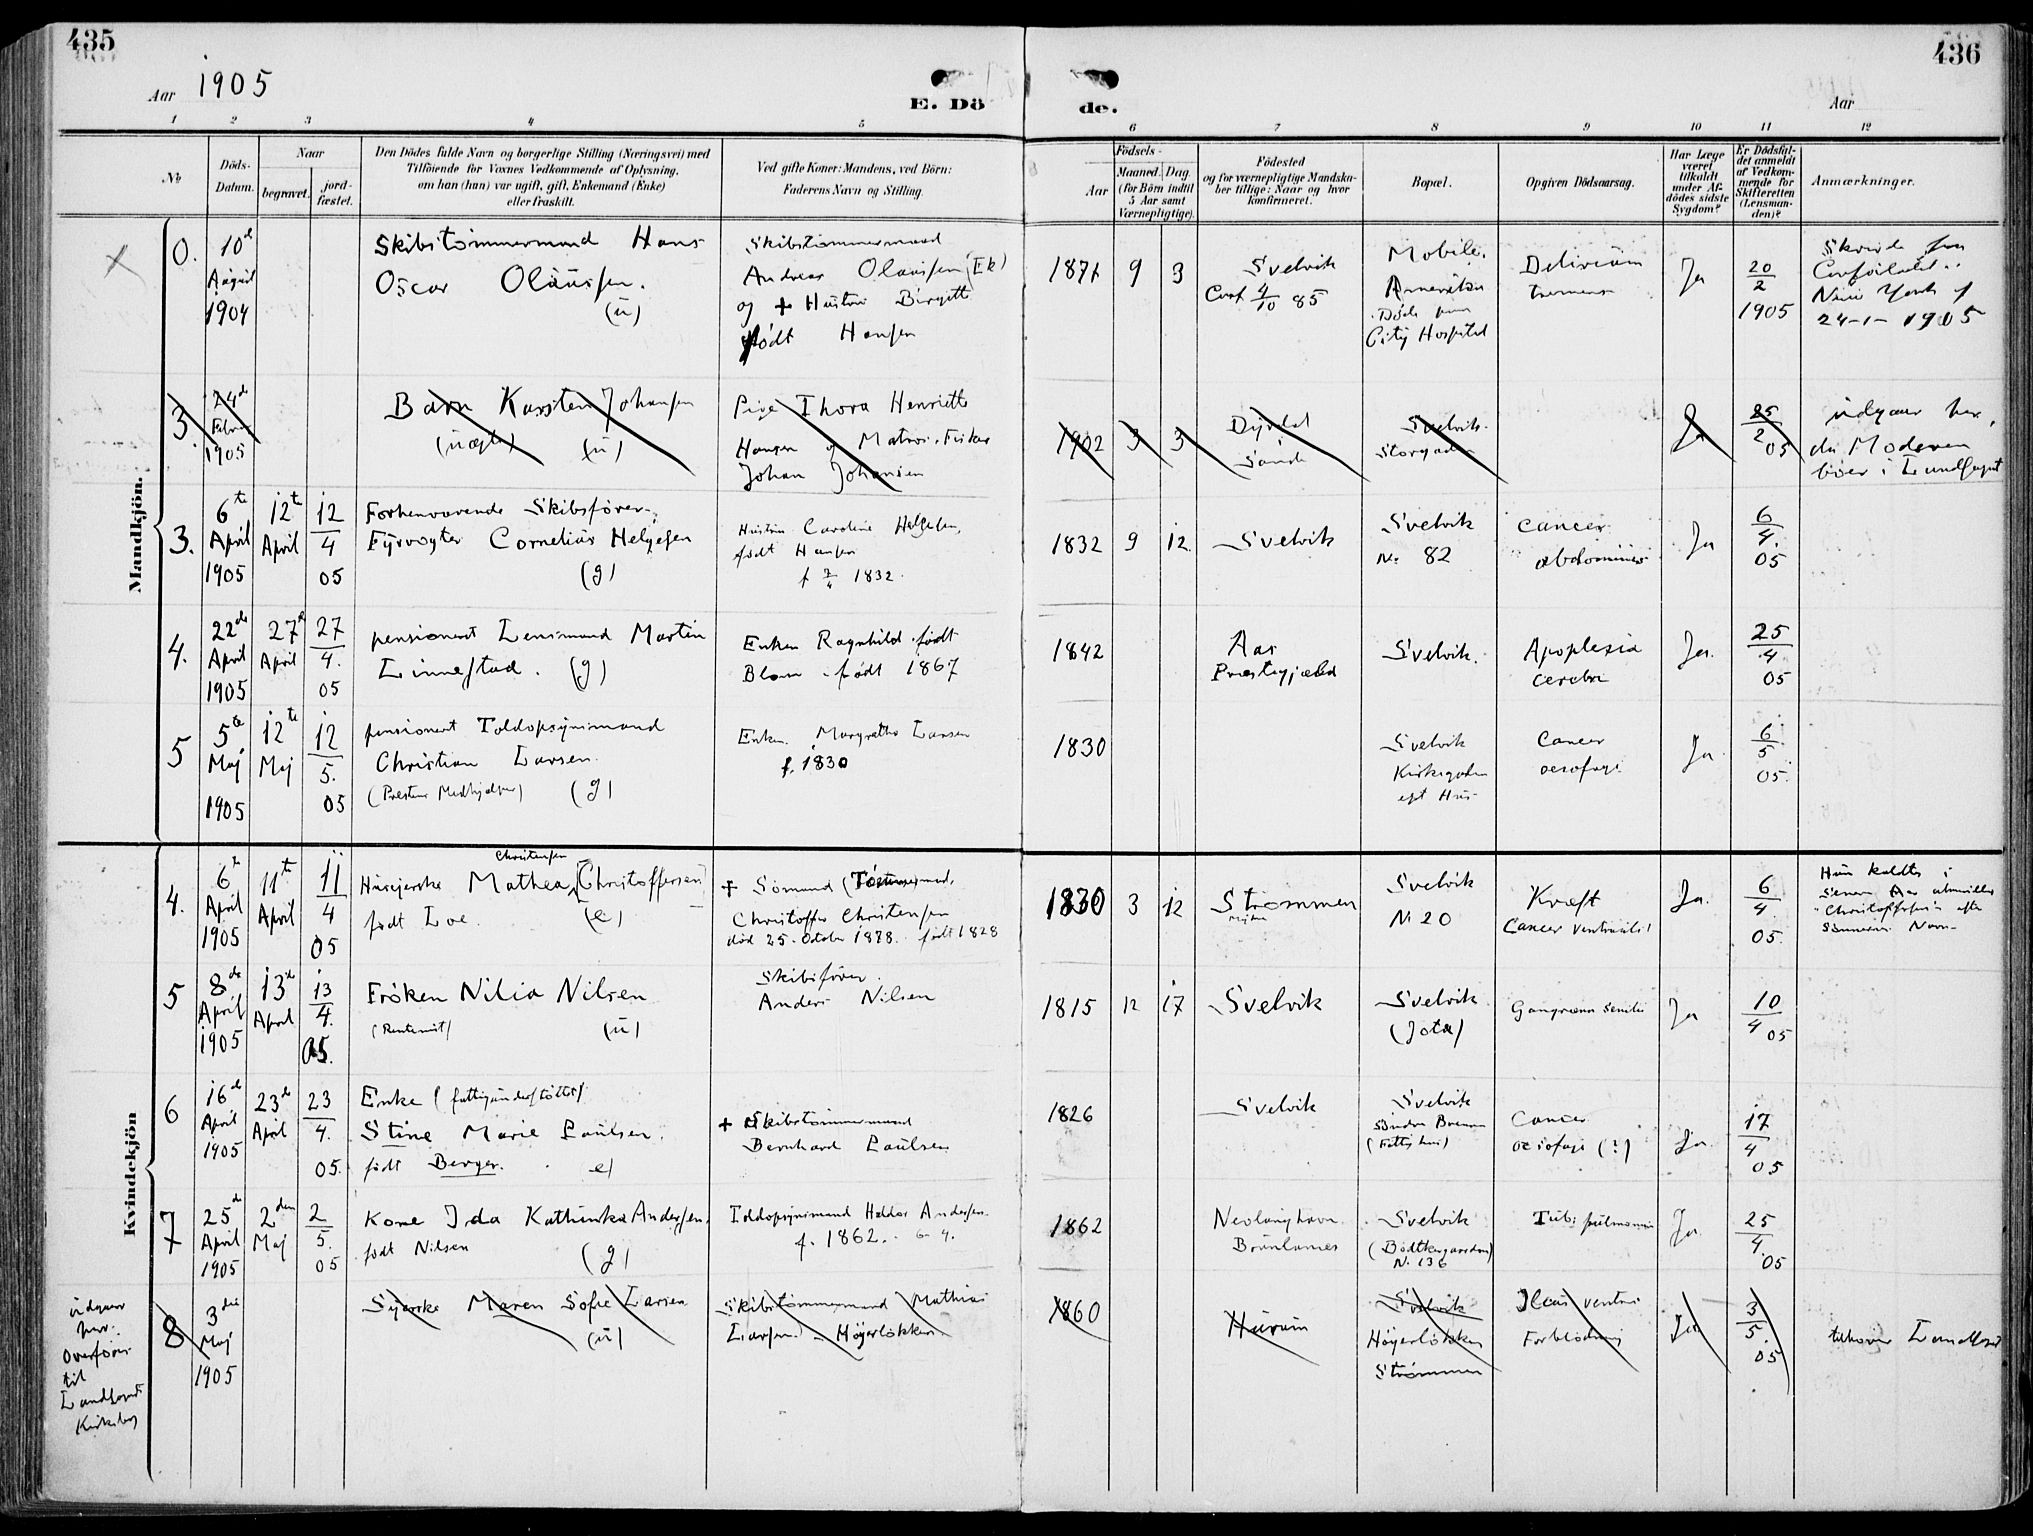 435
436
Aar 1905
E. Dö
de.
Aar
1 2 3 4 5 6 7 8 9 10 11 12
No
Döds-
Datum.
Naar
begravet.
jord-
fæstet.
Den Dödes fulde Navn og borgerlige Stilling (Næringsvei) med
Tilföiende for Voxnes Vedkommende af Oplysning,
om han (hun) var ugift, gift, Enkemand (Enke)
eller fraskilt.
Ved gifte Koner: Mandens, ved Börn:
Faderens Navn og Stilling.
Födsels-
Aar
Maaned. Dag
(for Börn indtil
5 Aar samt
Værnepligtige).
Födested
og for værnepligtige Mandska-
ber tillige: Naar og hvor
konfirmeret.
Bopæl.
Opgiven Dödsaarsag.
Har Læge
været
tilkaldt
under Af-
dödes sidste
Sygdom?
Er Dödsfal-
det anmeldt
af Vedkom-
mende for
Skifteretten
(Lensman-
den)?
Anmærkninger.
Mandkjön.
0.
10d
August
1904
Skibstömmermand Hans
Oscar Olaussen.
(u)
Skibstömmermand
Andreas Olaussen (Ek)
og + Hustru Birgitte
födt Hansen
1871 9 3
Svelvik
Conf 4/10 85
Mobile.
Amerika
Döde paa
City Hospital
Delirium
tremens
Ja
20
2
1905
New York
24-1-1905
3.
24de
Febr
1905
Barn Karsten Johansen
(uægte) (u)
Pige Thora Henriette
Hansen og Matros Fisker
Johan Johansen
1902 3 3
Sande
Svelvik.
Storgaden
Ja
25
2 05
udgaar her,
da Moderen
boer i Landsognet
3.
6te
April
1905
12te
April
12
4
05
Forhenværende Skibsförer,
Fyrvogter Cornelius Helgesen
(g)
Hustru Caroline Helgesen,
födt Hansen
1832.
1832 9 12
Svelvik
Svelvik
No 82
Cancer
abdominis
Ja
6
4.
05
4.
22de
April
1905
27d
April
27
4.
05
pensioneret Lensmand Martin
Linnestad. (g)
Enken Ragnhild födt
Blom födt 1867
1842
Aas
Præstegjæld
Svelvik.
Apoplexia
cerebri
Ja.
25
4
05
5
5te
Maj
1905
12te
Maj
12
5.
05
pensioneret Toldopsynsmand
Christian Larsen.
(Præstens Medhjelper) (g)
Enken Margrethe Larsen
f. 1830
1830
Svelvik
Kirkegaden
eget Hus
Cancer
oesofagi
Ja
6
5
05.
Kvindekjön
4.
6te
April
1905
11te
April
11
4
05
Christensen
Huseierske Mathea [Christoffersen]
födt Loe. (e)
+ Sömand
Christoffer Christensen
död 25. October 1878. födt 1828
1830 3 12
Strömmen
Svelvik
No 20
Kræft
Cancer ventriculi
Ja.
6
4.
05.
Hun kaldtes i
senere Aar almindelig
"Christoffersen" efter
Sönnernes Navn
5
8de
April
1905
13de
April
13
4.
05.
Fröken Nilia Nilsen
(Rentenist) (u)
Skibsförer
Anders Nilsen
1815 12 17
Svelvik
Svelvik
(Jota)
Gangræna senilis
Ja
10
4 05
6
16de
April
1905
23de
April
23
4.
05.
Enke (fattigunderstöttet)
Stine Marie Paulsen.
födt Berger. e)
+ Skibstömmermand
Bernhard Paulsen
1826
Svelvik
Svelvik
(Fattighus)
Cancer
oesofagi (?)
Ja.
17
4
05
7
25de
April
1905
2den
Maj
2
5.
05
Kone Ida Kathinka Andersen,
födt Nilsen (g)
Toldopsynsmand Haldor Andersen.
f. 1862.
1862
Nevlunghavn
Brunlanes
Svelvik
(Bödtkergaarden)
No 136
Tub: pulmonum
Ja.
25
4
05
udgaar
her.
Overföres
til
Landsognets
Kirkebog
8
3die
Maj
1905
Syerske Maren Sofie Larsen
(u)
Skibstömmermand Mathias
Larsen. Höyerlökken.
1860
Hurum
Svelvik
Höyerlökken
Strömmen
Ulcus ventri
Forblödning
Ja
3
5.
05
tilhörer Landsognet